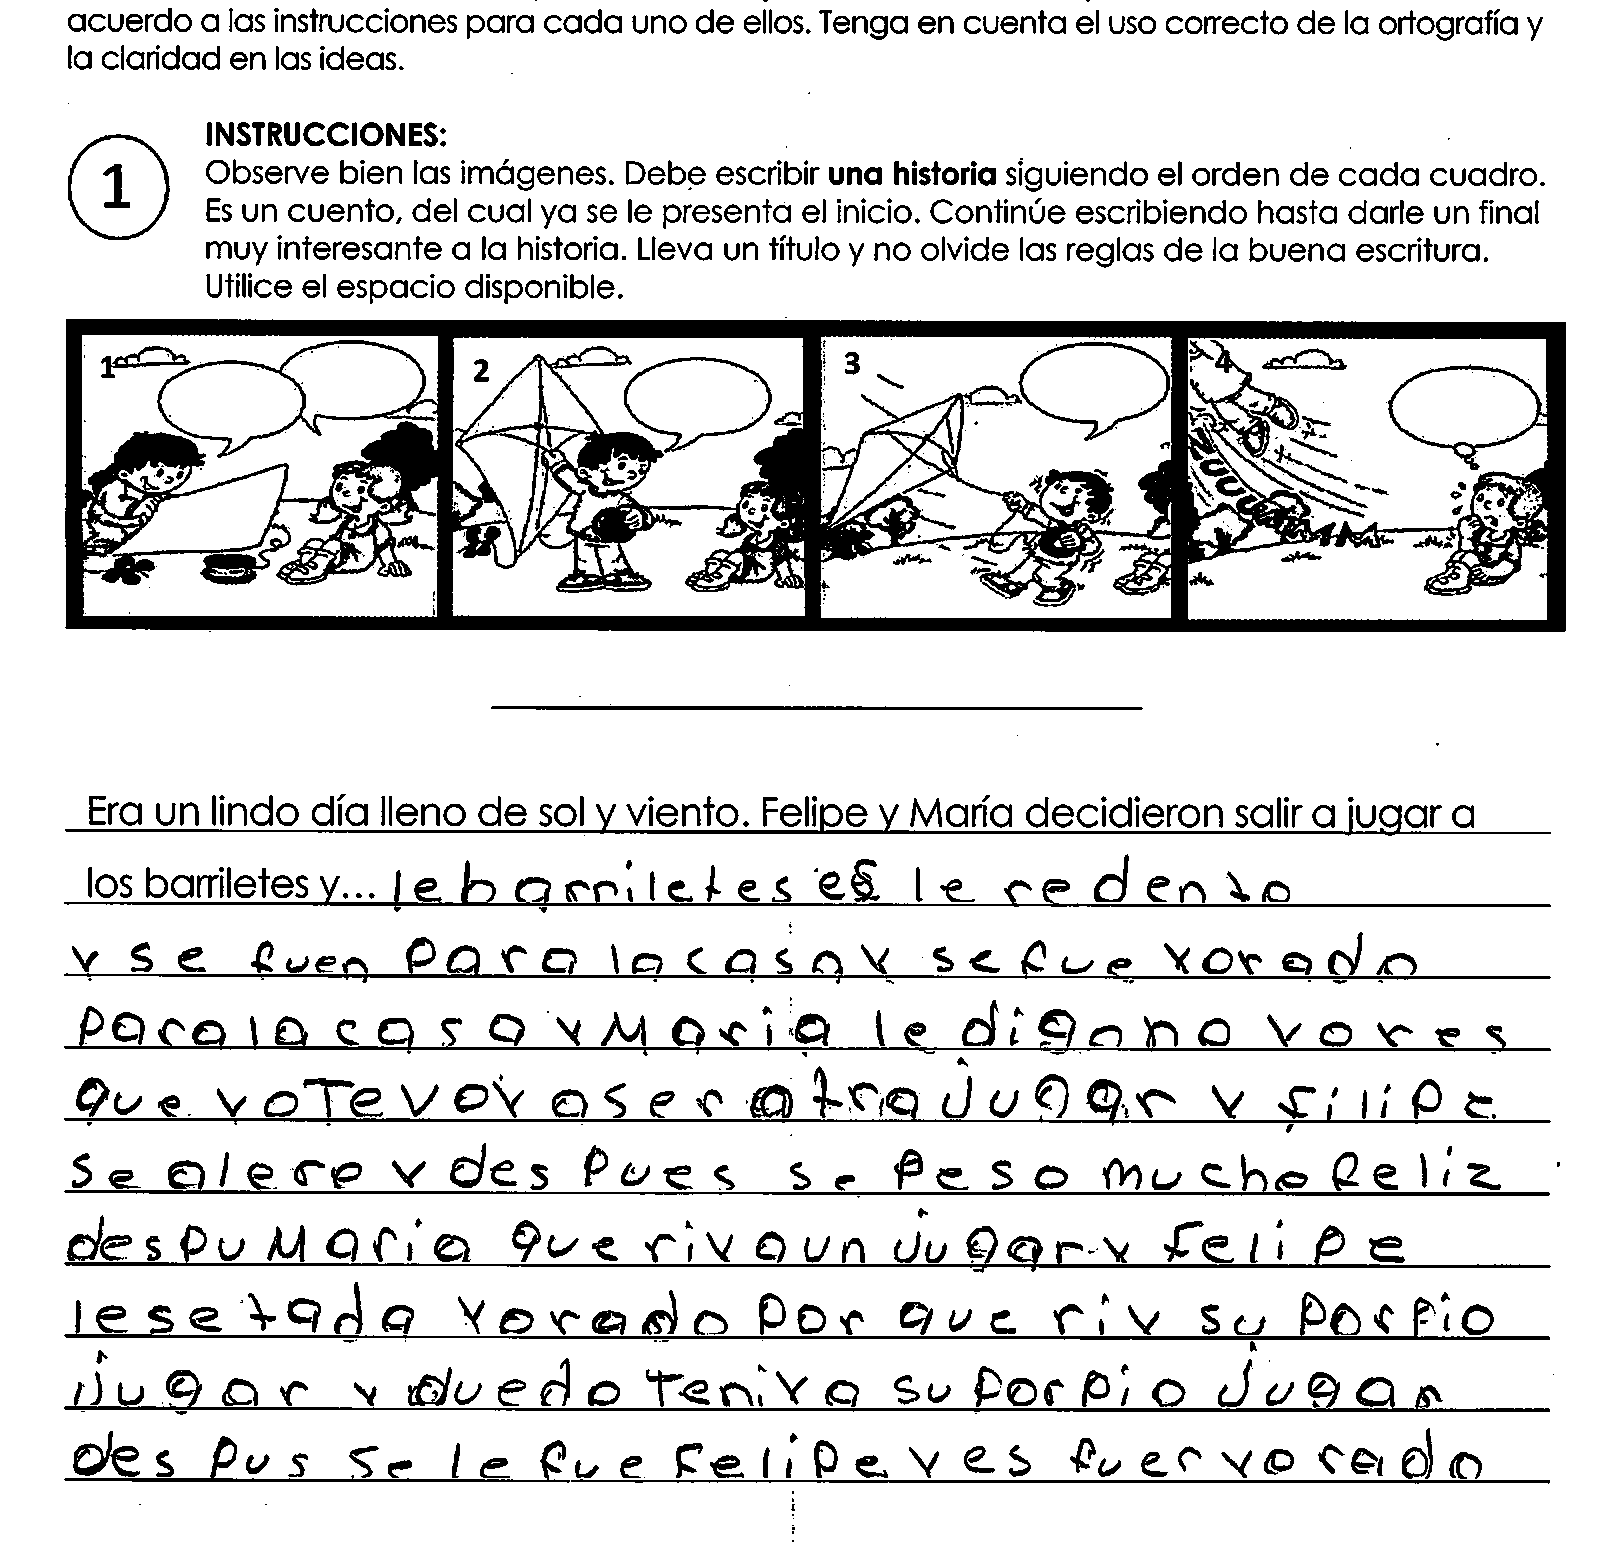 acuerdo a las instrucciones para cada uno de ellos. Tenga en cuenta el uso correcto de la ortografía y
la claridad en las ideas.
1
INSTRUCCIONES:
Observe bien las imágenes. Debe escribir una historia siguiendo el orden de cada cuadro.
Es un cuento, del cual ya se le presenta el inicio. Continúe escribiendo hasta darle un final
muy interesante a la historia. Lleva un título y no olvide las reglas de la buena escritura.
Utilice el espacio disponible.
1 2 3 4
Era un lindo día lleno de sol y viento. Felipe y María decidieron salir a jugar a
los barriletes y... le barriletes es le redento
y se fuen para la casa y se fue yorado
para la casa y Maria le digo no yores
que yo te voy a ser otra jugar y filipe
se alere y des pues se peso mucho feliz
despu Maria queriya un jugar y felipe
le setada yorado por que riy su porpio
jugar y quedo teniya su porpio jugar
des pus se le fue felipe y es fuer yorado